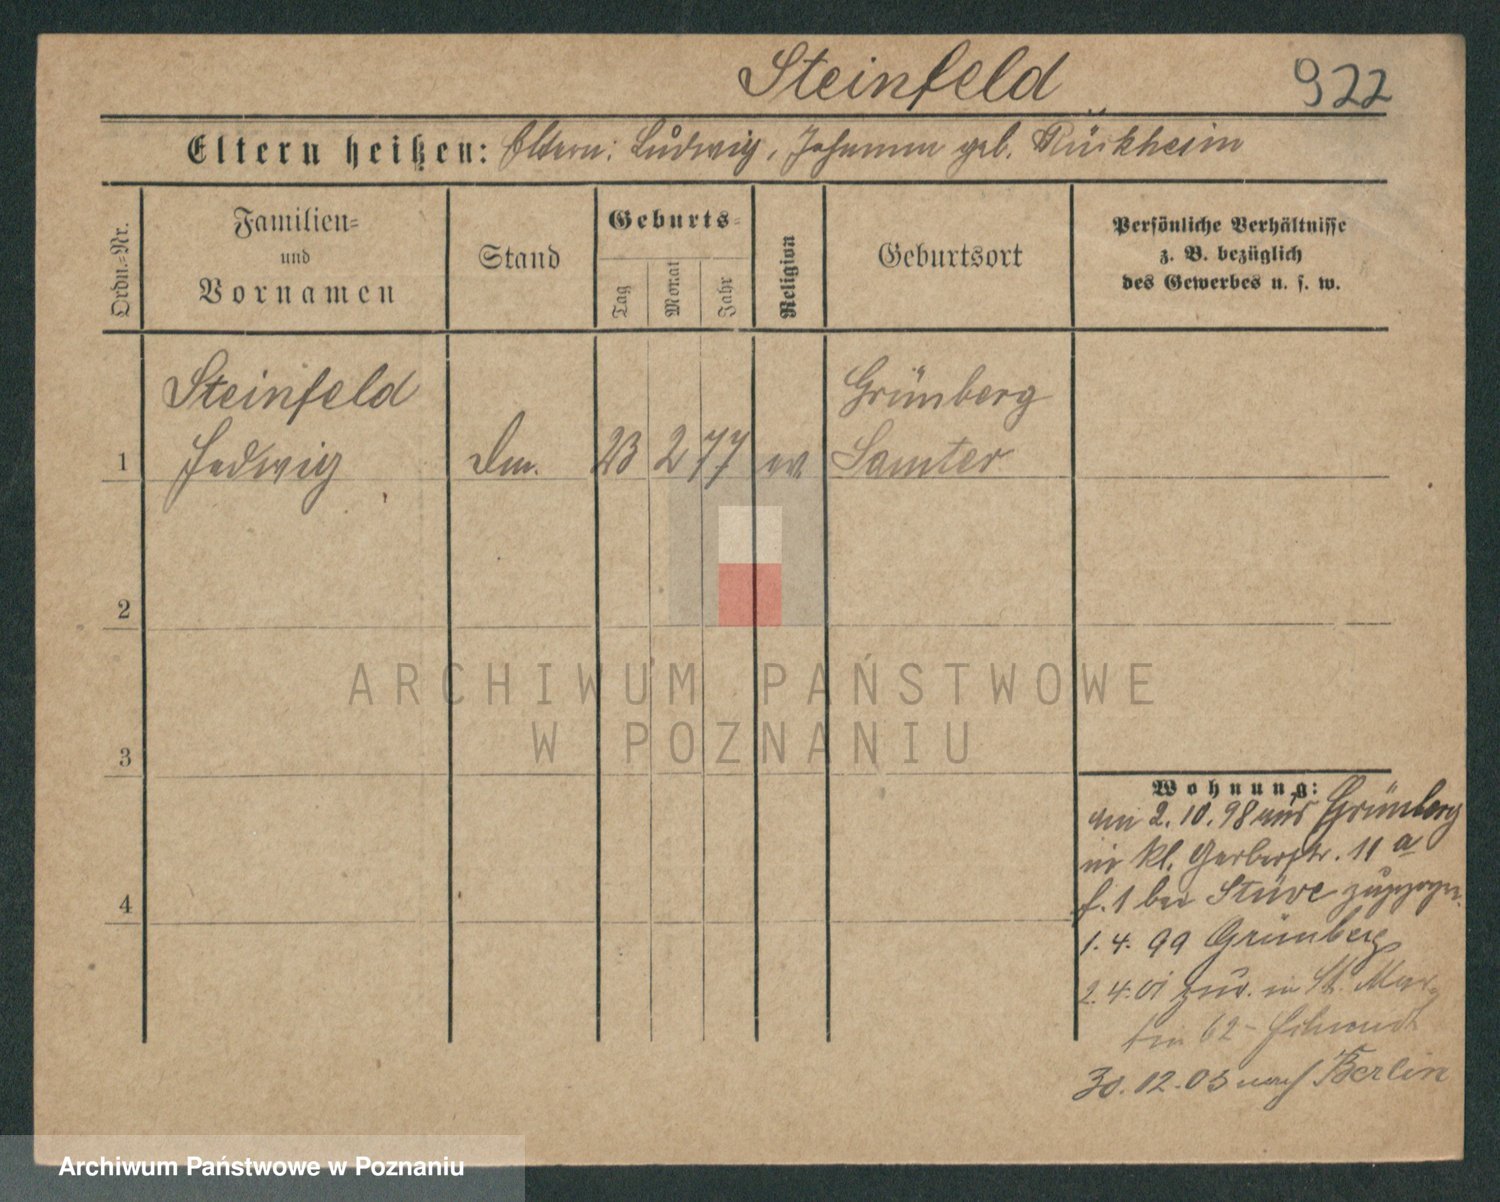 Steinfeld 922
Eltern heißen: Eltern: Ludwig, Johanna geb.
Ordn.-Nr.
Familien-
und
Vornamen
Stand
Geburts-
Tag
Monat
Jahr
Religion
Geburtsort
Persönliche Verhältnisse
z. B. bezüglich
des Gewerbes u. s. w.
Steinfeld Grünberg
1 Hedwig 23 2 77 ev Samter
2
3
4
Wohnung:
am 2.10.98 aus Grünberg
in kl. Gerberstr. 11 a
bei Stüve zugezogen.
1.4.99 Grünberg
2.4.01 zur. in St. Mar
tin 62
30.12.05 nach Berlin
ARCHIWUM PAŃSTWOWE
W POZNANIU
Archiwum Państwowe w Poznaniu